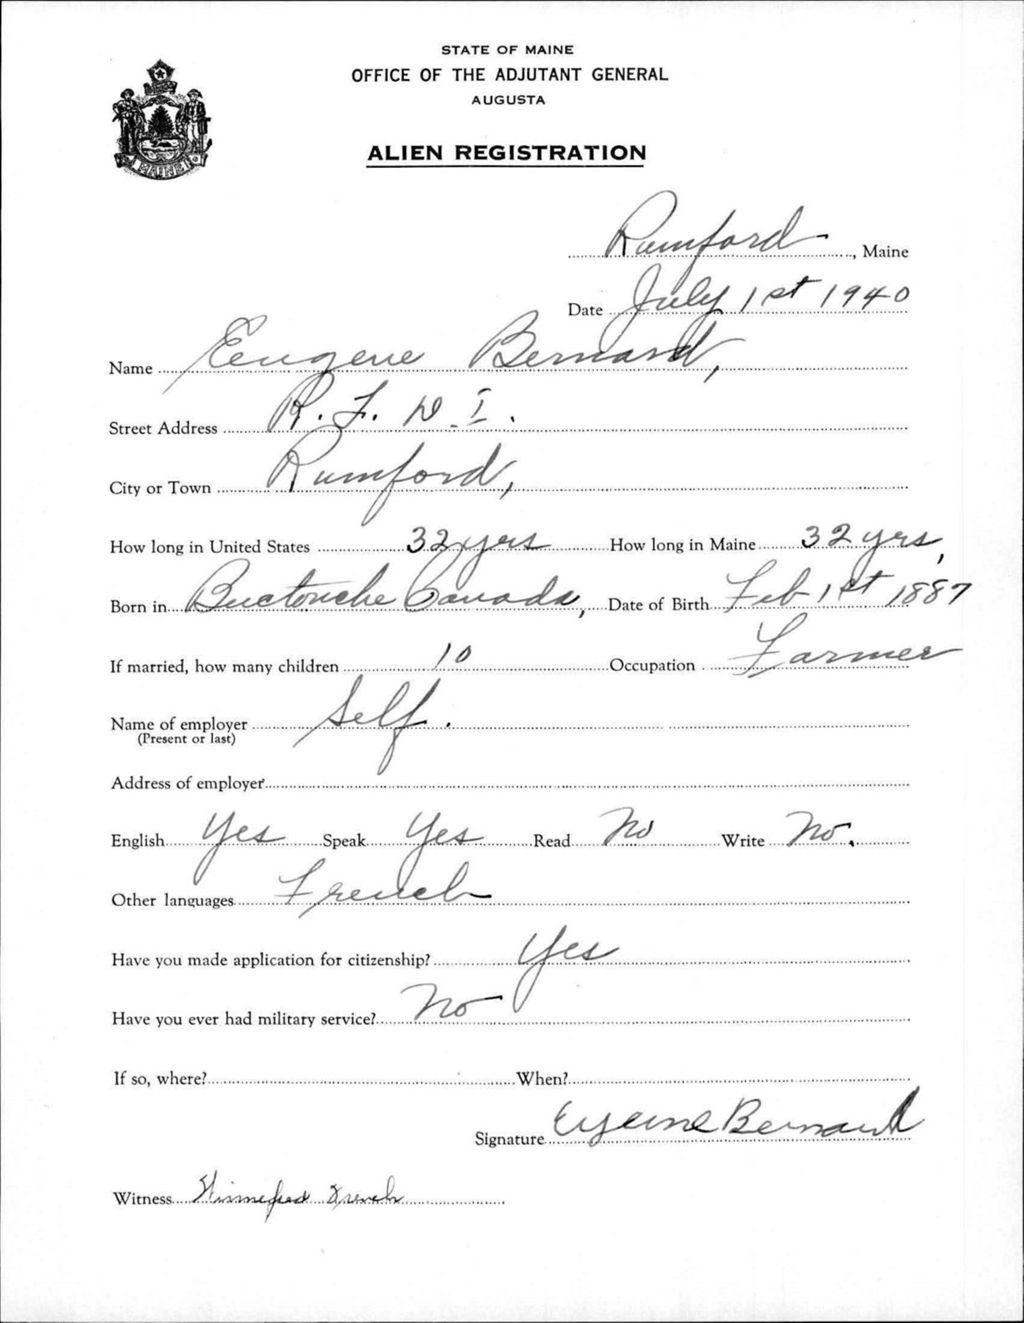 STATE OF MAINE
OFFICE OF THE ADJUTANT GENERAL
AUGUSTA
ALIEN REGISTRATION
Rumford, Maine
Date July 1st 1940
Name Eeugene Bernard,
Street Address R. F. D. I.
City or Town Rumford,
How long in United States 32 yrs How long in Maine 32 yrs,
Born in Buctouche Canada, Date of Birth Feb 1st 1887
If married, how many children 10 Occupation Farmer
Name of employer Self.
(Present or last)
Address of employer
English Yes Speak Yes Read No Write No.
Other languages French
Have you made application for citizenship? Yes
Have you ever had military service? No
If so, where? When?
Signature Bernard
Witness Winnefred French
MAINE